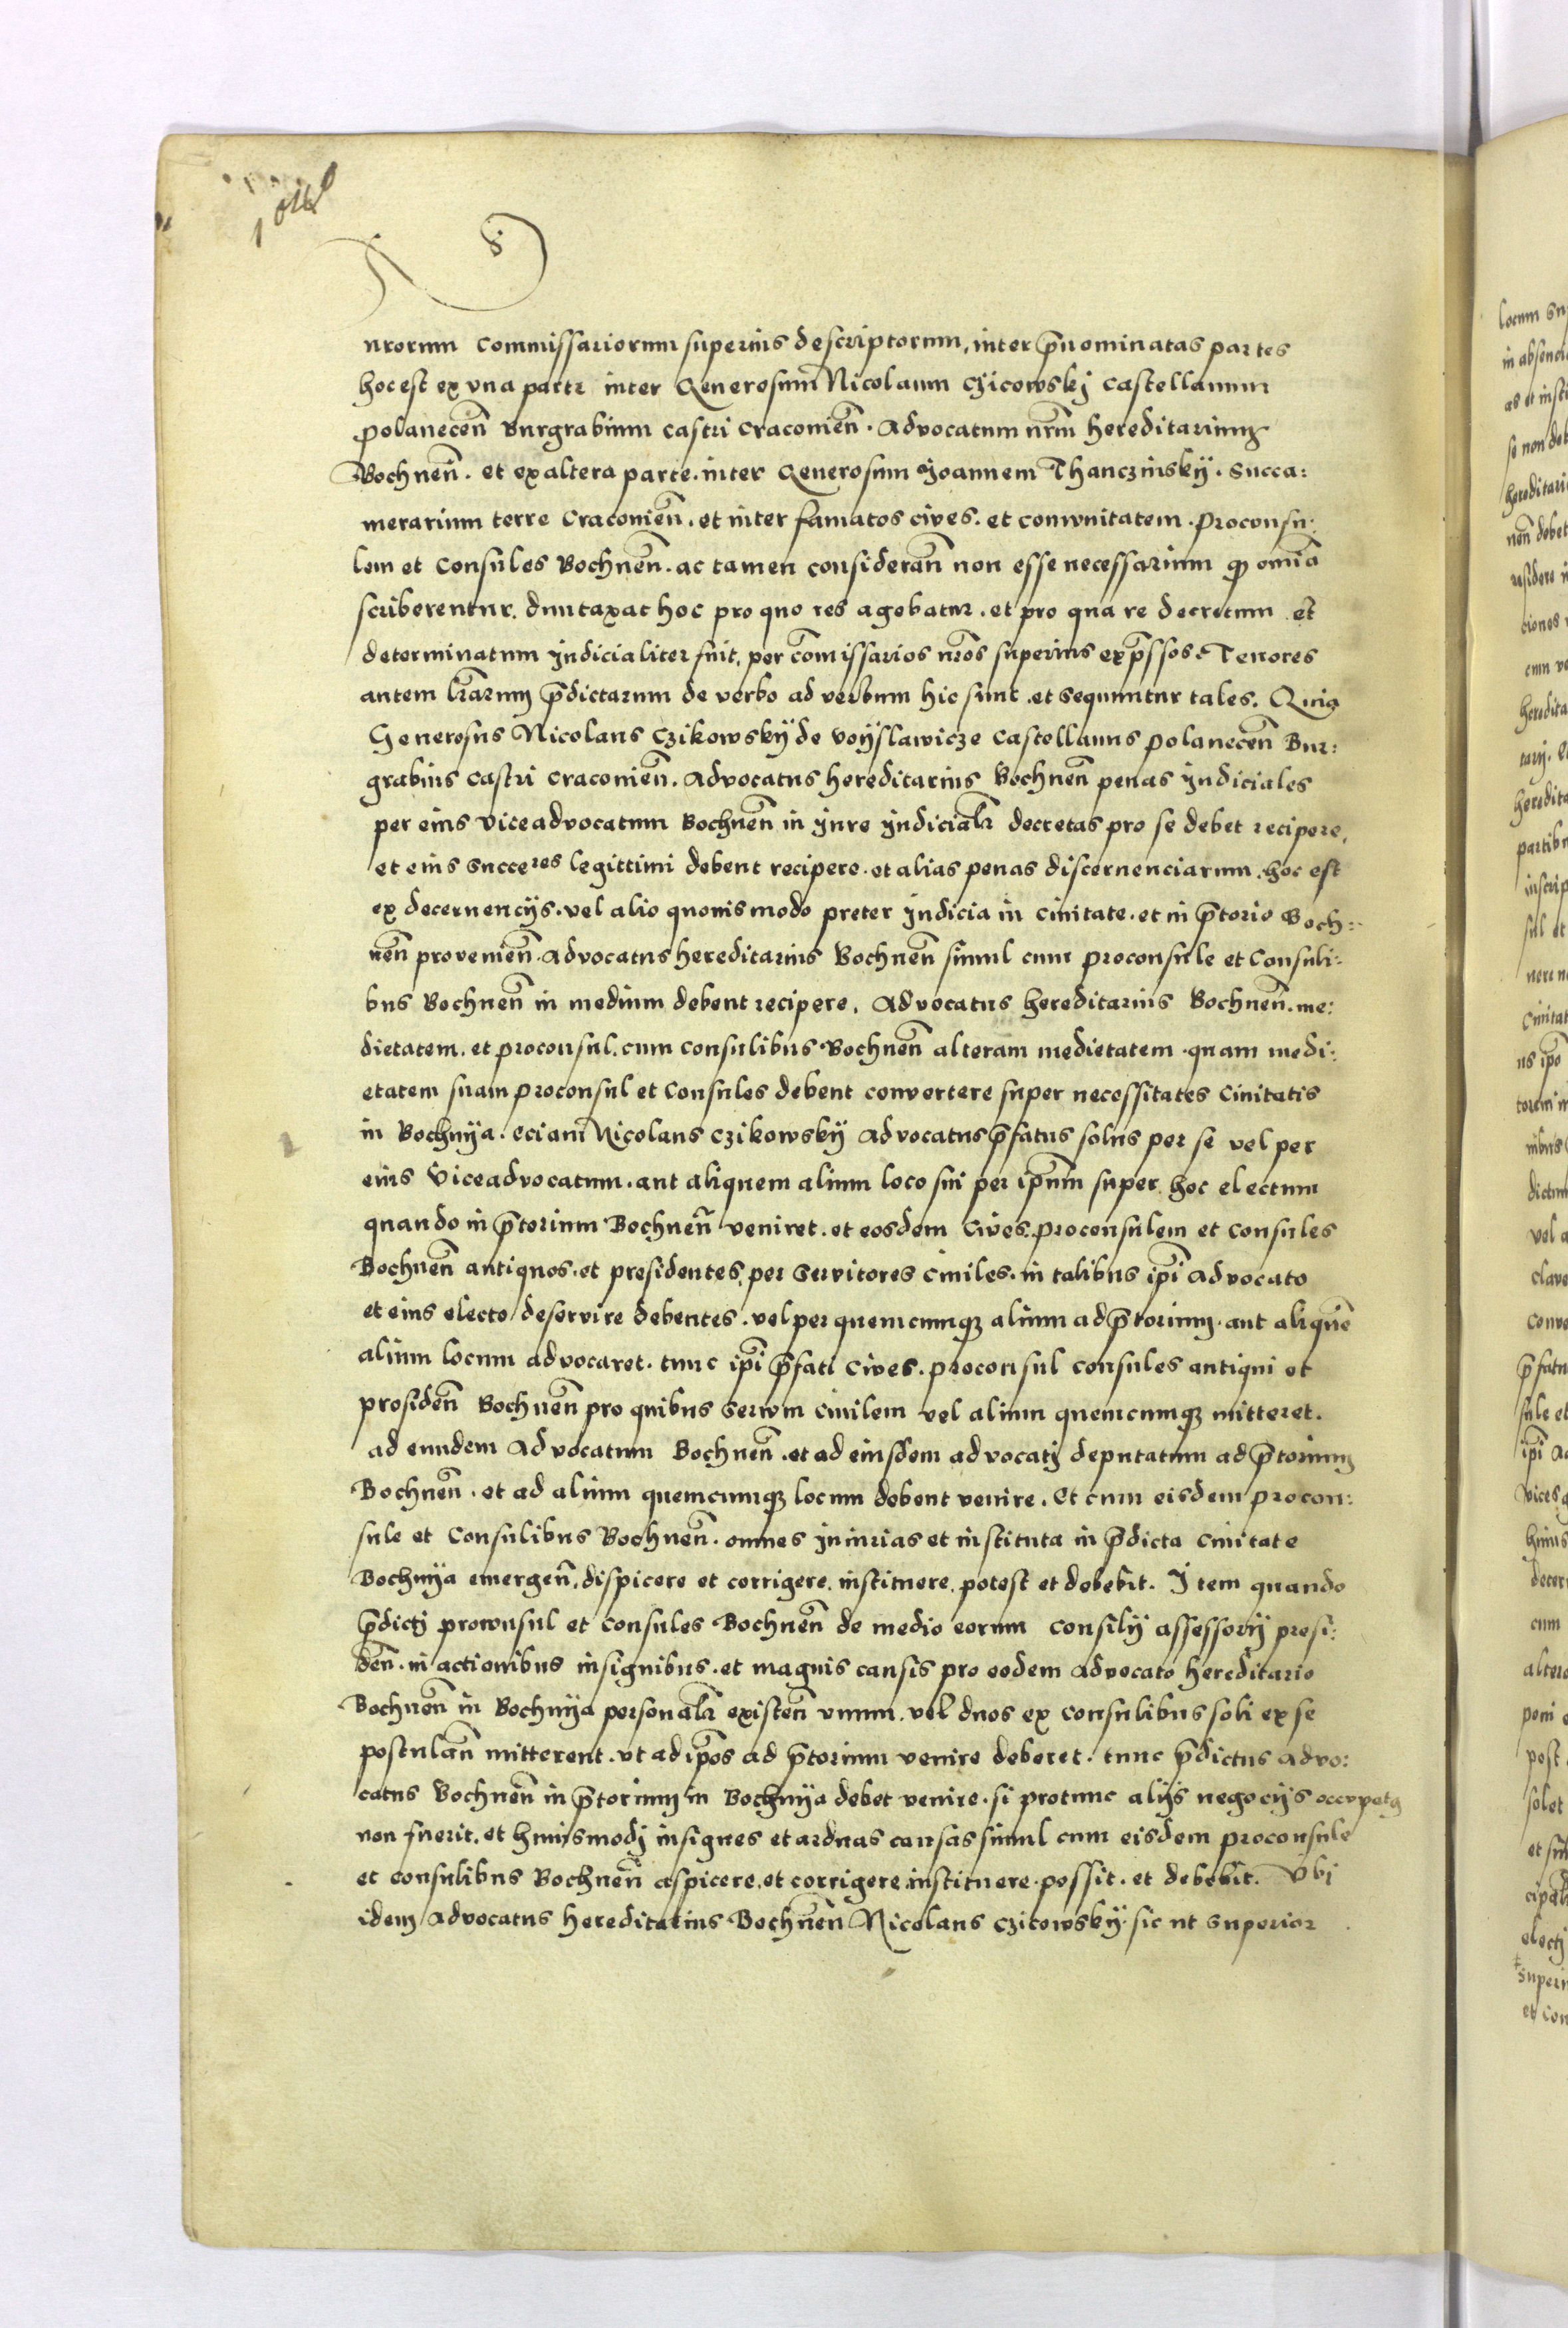 nrorum Commissariorum superius descriptorum, inter p̄nominatas partes
hoc est ex vna parte inter Generosum Nicolaum Czicowskj Castellanum
polanecen̄ Burgrabium Castri Cracouien̄. Advocatum nrm̄ hereditarium
Bochnen̄. et ex altera parte. inter Generosum Joannem Thanczinskÿ. Succa:
merarium terre Cracouien̄. et inter famatos cives. et comunitatem. proconsu:
lem et Consules Bochnen̄. ac tamen consideran̄ non esse necessarium q omīa
scriberentur. duntaxat hoc pro quo res agebatur. et pro qua re decretum et
determinatum judicialiter fuit, per com̄issarios nr̄os superius exp̄ssos. Tenores
autem lr̄arum p̄dictarum de verbo ad verbum hic sunt. et sequuntur tales. Quia
Generosus Nicolaus Czikowskÿ de voÿslawicze Castellanus polanecen̄ Bur:
grabius Castri Cracouien̄. Advocatus hereditarius Bochnen̄ penas judiciales
per eius viceadvocatum Bochnen̄ in jure judicialr̄ decretas pro se debet recipere,
et eius succeres legittimi debent recipere. et alias penas discernenciarum. hoc est
ex decernencijs. vel alio quouis modo preter judicia in ciuitate. et in p̄torio Boch:
nen̄ provenien̄. Advocatus hereditarius Bochnen̄ simul cum proconsule et Consuli:
bus Bochnen̄ in medium debent recipere. Advocatus hereditarius Bochnen̄. me:
dietatem. et proconsul. cum consulibus Bochnen̄ alteram medietatem. quam medi:
etatem suam proconsul et Consules debent convertere super necessitates Ciuitatis
in Bochnÿa. eciam Nicolaus Czikowskÿ Advocatus p̄fatus solus per se vel per
eius viceadvocatum. aut aliquem alium loco sui per ip̄um super hoc electum
quando in p̄torium Bochnen̄ veniret. et eosdem Cives. proconsulem et consules
Bochnen̄ antiquos. et presidentes, per servitores Ciuiles. in talibus ip̄i Advocato
et eius electo deservire debentes. vel per quemcumqz alium ad p̄torium. aut aliquē
alium locum advocaret. tunc ip̄i p̄fati Cives. proconsul consules antiqui et
presiden̄ Bochnen̄ pro quibus servum ciuilem vel alium quemcumqz mitteret.
ad eundem Advocatum Bochnen̄. et ad eiusdem advocatj deputatum ad p̄torium
Bochnen̄. et ad alium quemcumqz locum debent venire. Et cum eisdem procon:
sule et Consulibus Bochnen̄. omnes iniurias et instituta in p̄dicta Ciuitate
Bochnÿa emergen̄. dispicere et corrigere. instituere. potest et debebit. Item quando
p̄dictj proconsul et consules Bochnen̄ de medio eorum Consilÿ assessorÿ presi:
den̄. in actionibus insignibus. et magnis causis pro eodem Advocato hereditario
Bochnen̄ in Bochnÿa personalr̄ existen̄ vnum. vel duos ex consulibus soli ex se
postulan̄ mitterent. vt ad ip̄os ad p̄torium venire deberet. tunc p̄dictus advo:
catus Bochnen̄ in p̄torium in Bochnÿa debet venire. si protunc alijs negocijs occupatꝗ
non fuerit. et huiusmodj insignes et arduas causas simul cum eisdem proconsule
et consulibus Bochnen̄ aspicere. et corrigere instituere. possit. et debebit. Vbi
idem advocatus hereditarius Bochnen̄ Nicolaus Czicowskÿ. sic ut superior